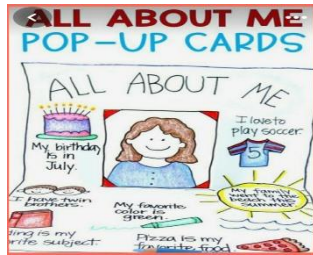 ALL ABOUT ME
POP-UP CARDS
ALL ABOUT ME
My birthday
is in
July.
I love to
play soccer.
5
I have twin
brothers.
My favorite
color is
green.
My family
went to the
beach this
summer.
ting is my
rite subject.
Pizza is my
favorite food